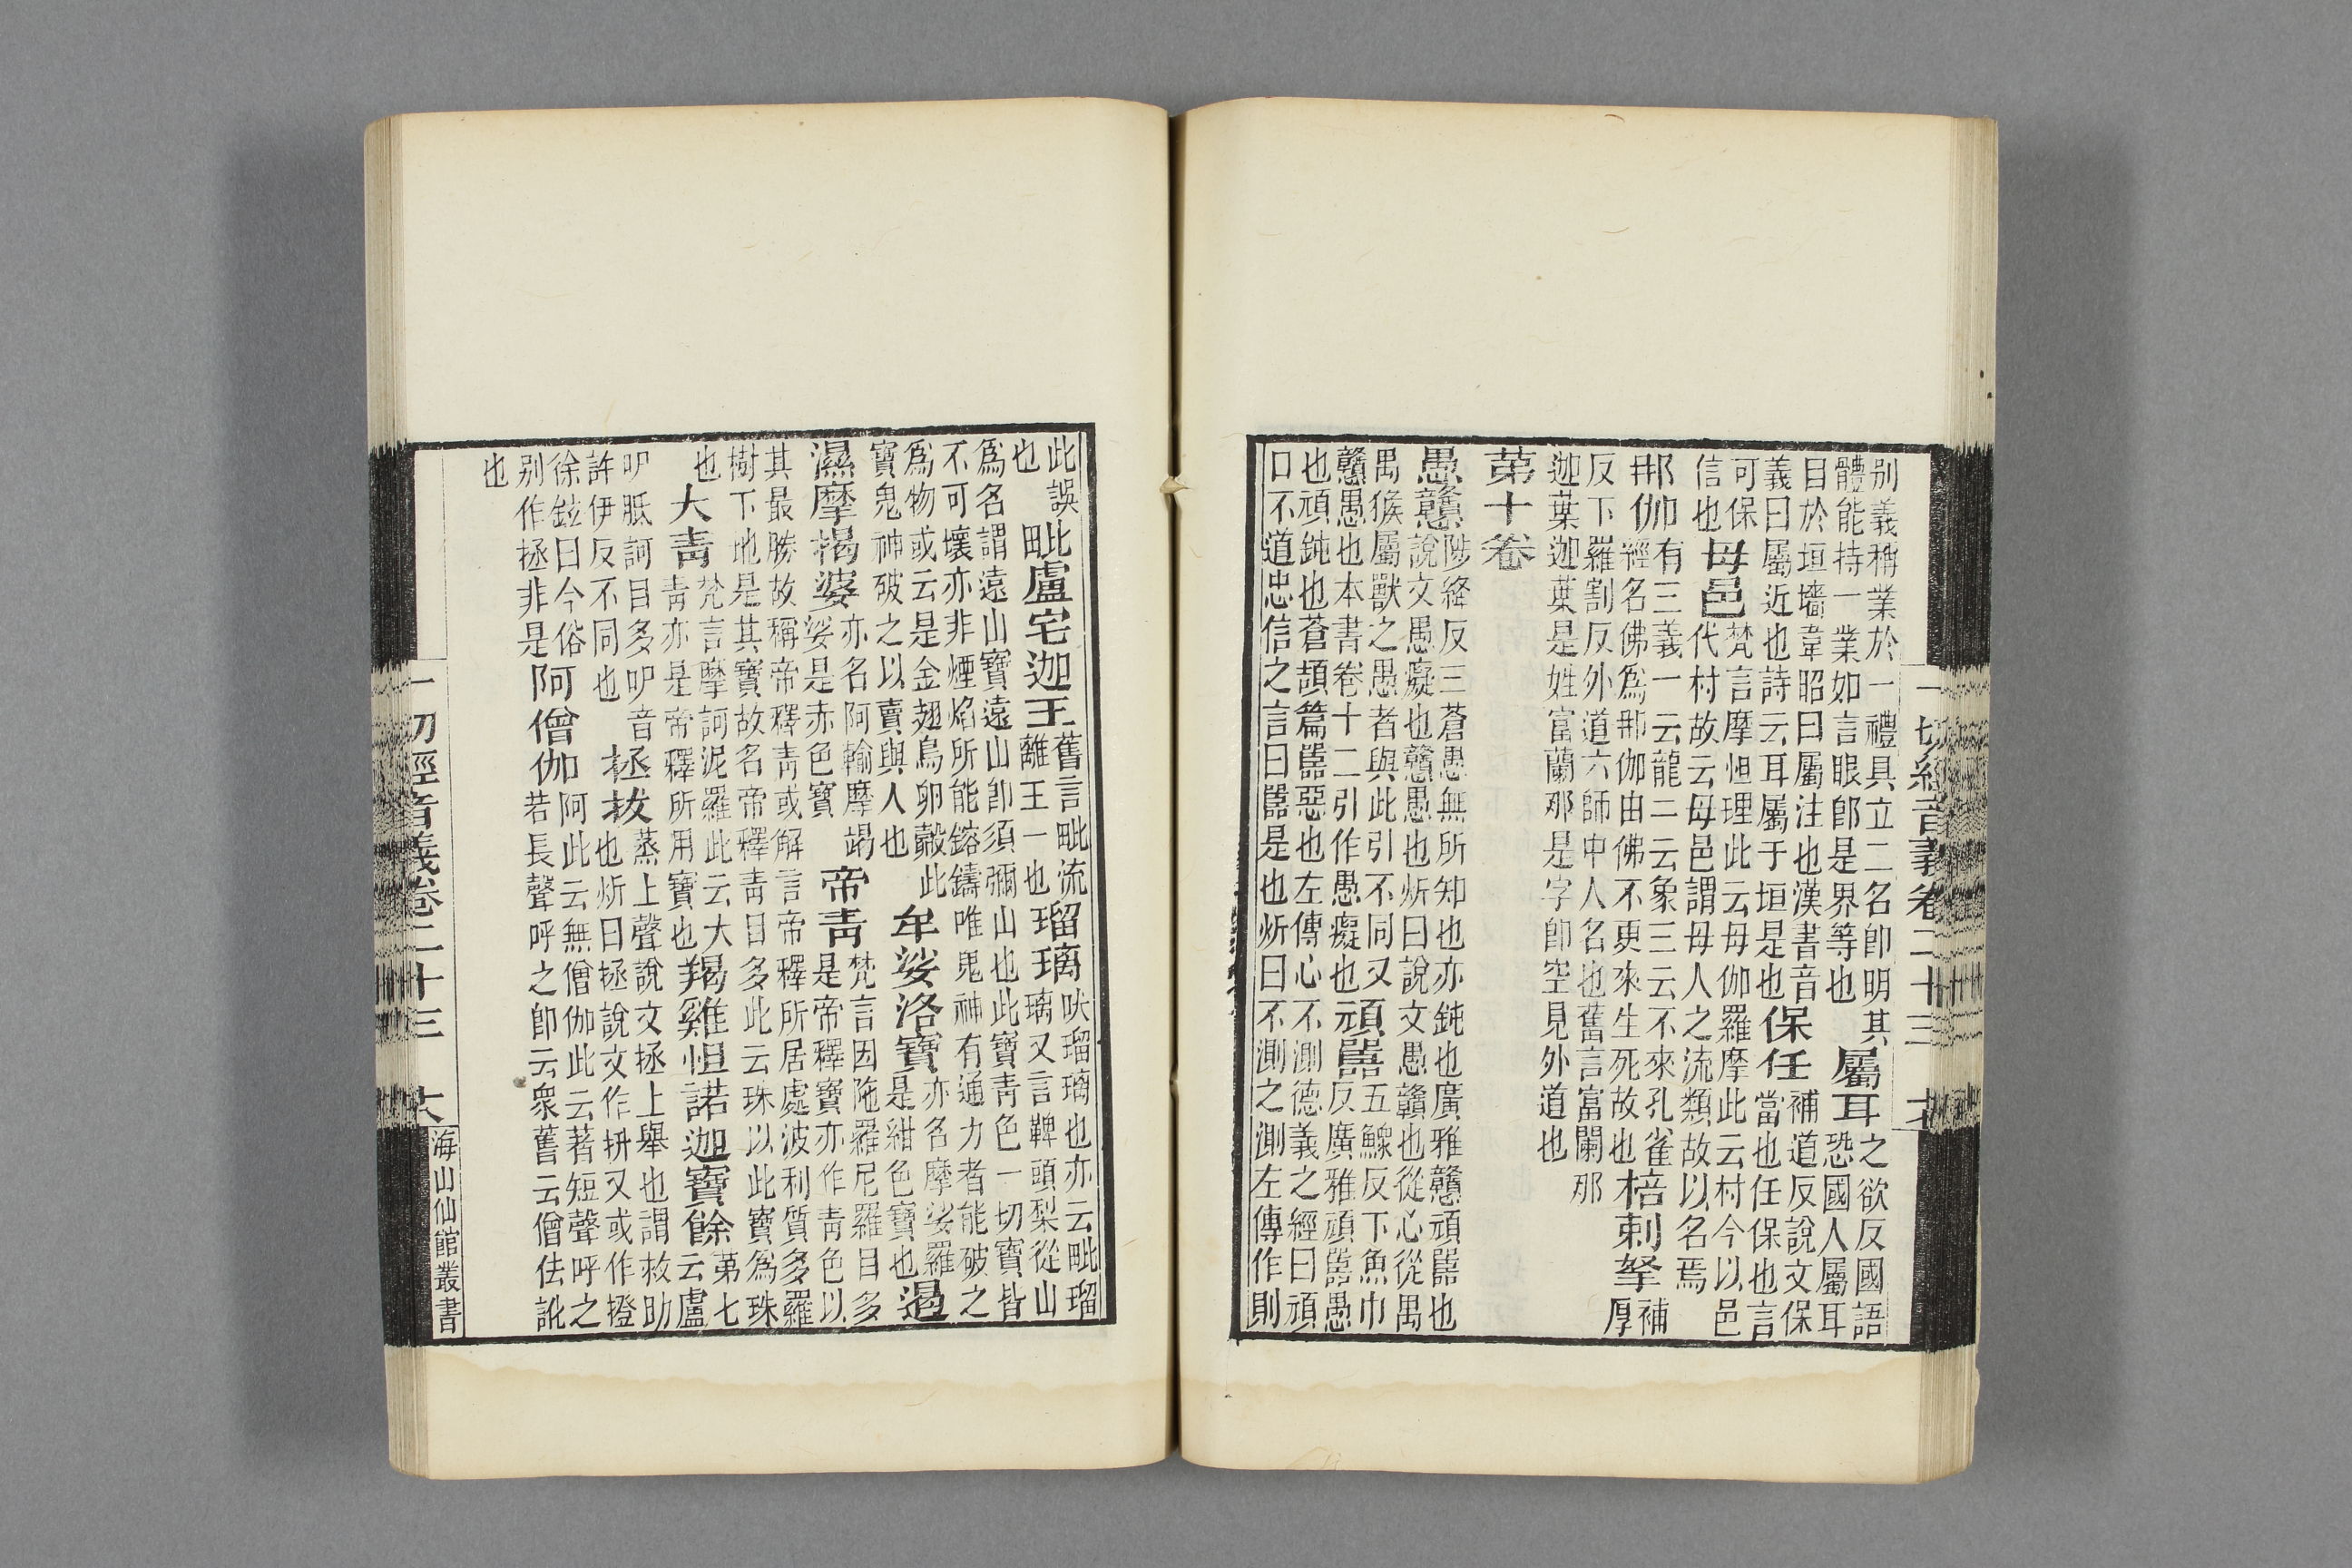 一切經音義卷二十三
別義稱業於一禮具立二名卽明其
體能持一業如言眼卽是界等也
屬耳
之欲反國語
恐國人屬耳
目於垣墻韋昭曰屬注也漢書音
義曰屬近也詩云耳屬于垣是也
保任
補道反說文保
當也任保也言
可保
信也
母邑
梵言摩怛理此云母伽羅摩此云村今以邑
代村故云母邑謂母人之流類故以名焉
那伽
有三義一云龍二云象三云不來孔雀
經名佛爲那伽由佛不更來生死故也
棓剌拏
補
厚
反下羅割反外道六師中人名也舊言富闌那
迦葉迦葉是姓富蘭那是字卽空見外道也
第十卷
愚戇
陟絳反三蒼愚無所知也亦鈍也廣雅戇頑嚚也
說文愚癡也戇愚也炘曰說文愚贛也從心從禺
禺猴屬獸之愚者與此引不同又
戇愚也本書卷十二引作愚癡也
頑嚚
五鰥反下魚巾
反廣雅頑嚚愚
也頑鈍也蒼頡篇嚚惡也左傳心不測德義之經曰頑
口不道忠信之言曰嚚是也炘曰不測之測左傳作則
此誤
也
毗盧宅迦王
舊言毗流
離王一也
瑠璃
吠瑠璃也亦云毗瑠
璃又言鞞頭梨從山
爲名謂遠山寶遠山卽須彌山也此寶青色一切寶皆
不可壞亦非煙焰所能鎔鑄唯鬼神有通力者能破之
爲物或云是金翅鳥卵㲉此
寶鬼神破之以賣與人也
牟娑洛寶
亦名摩娑羅
是紺色寶也
遏
濕摩揭婆
亦名阿輸摩竭
娑是赤色寶
帝青
梵言因陁羅尼羅目多
是帝釋寶亦作青色以
其最勝故稱帝釋青或解言帝釋所居處波利質多羅
樹下地是其寶故名帝釋青目多此云珠以此寶爲珠
也
大青
梵言摩訶泥羅此云大
青亦是帝釋所用寶也
羯雞怛諾迦寶餘
第七
云盧
呬胝訶目多呬音
許伊反不同也
拯拔
蒸上聲說文拯上舉也謂救助
也炘曰拯說文作抍又或作撜
徐鉉曰今俗
别作拯非是
阿僧伽
阿此云無僧伽此云著短聲呼之
若長聲呼之卽云衆舊云僧佉訛
也
一切經音義卷二十三
海山仙館叢書